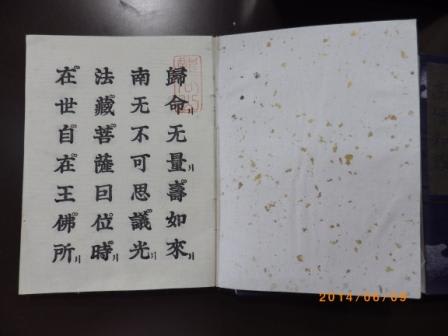 歸命无量壽如來
南无不可思議光
法藏菩薩因位時
在世自在王佛所
2014/06/09